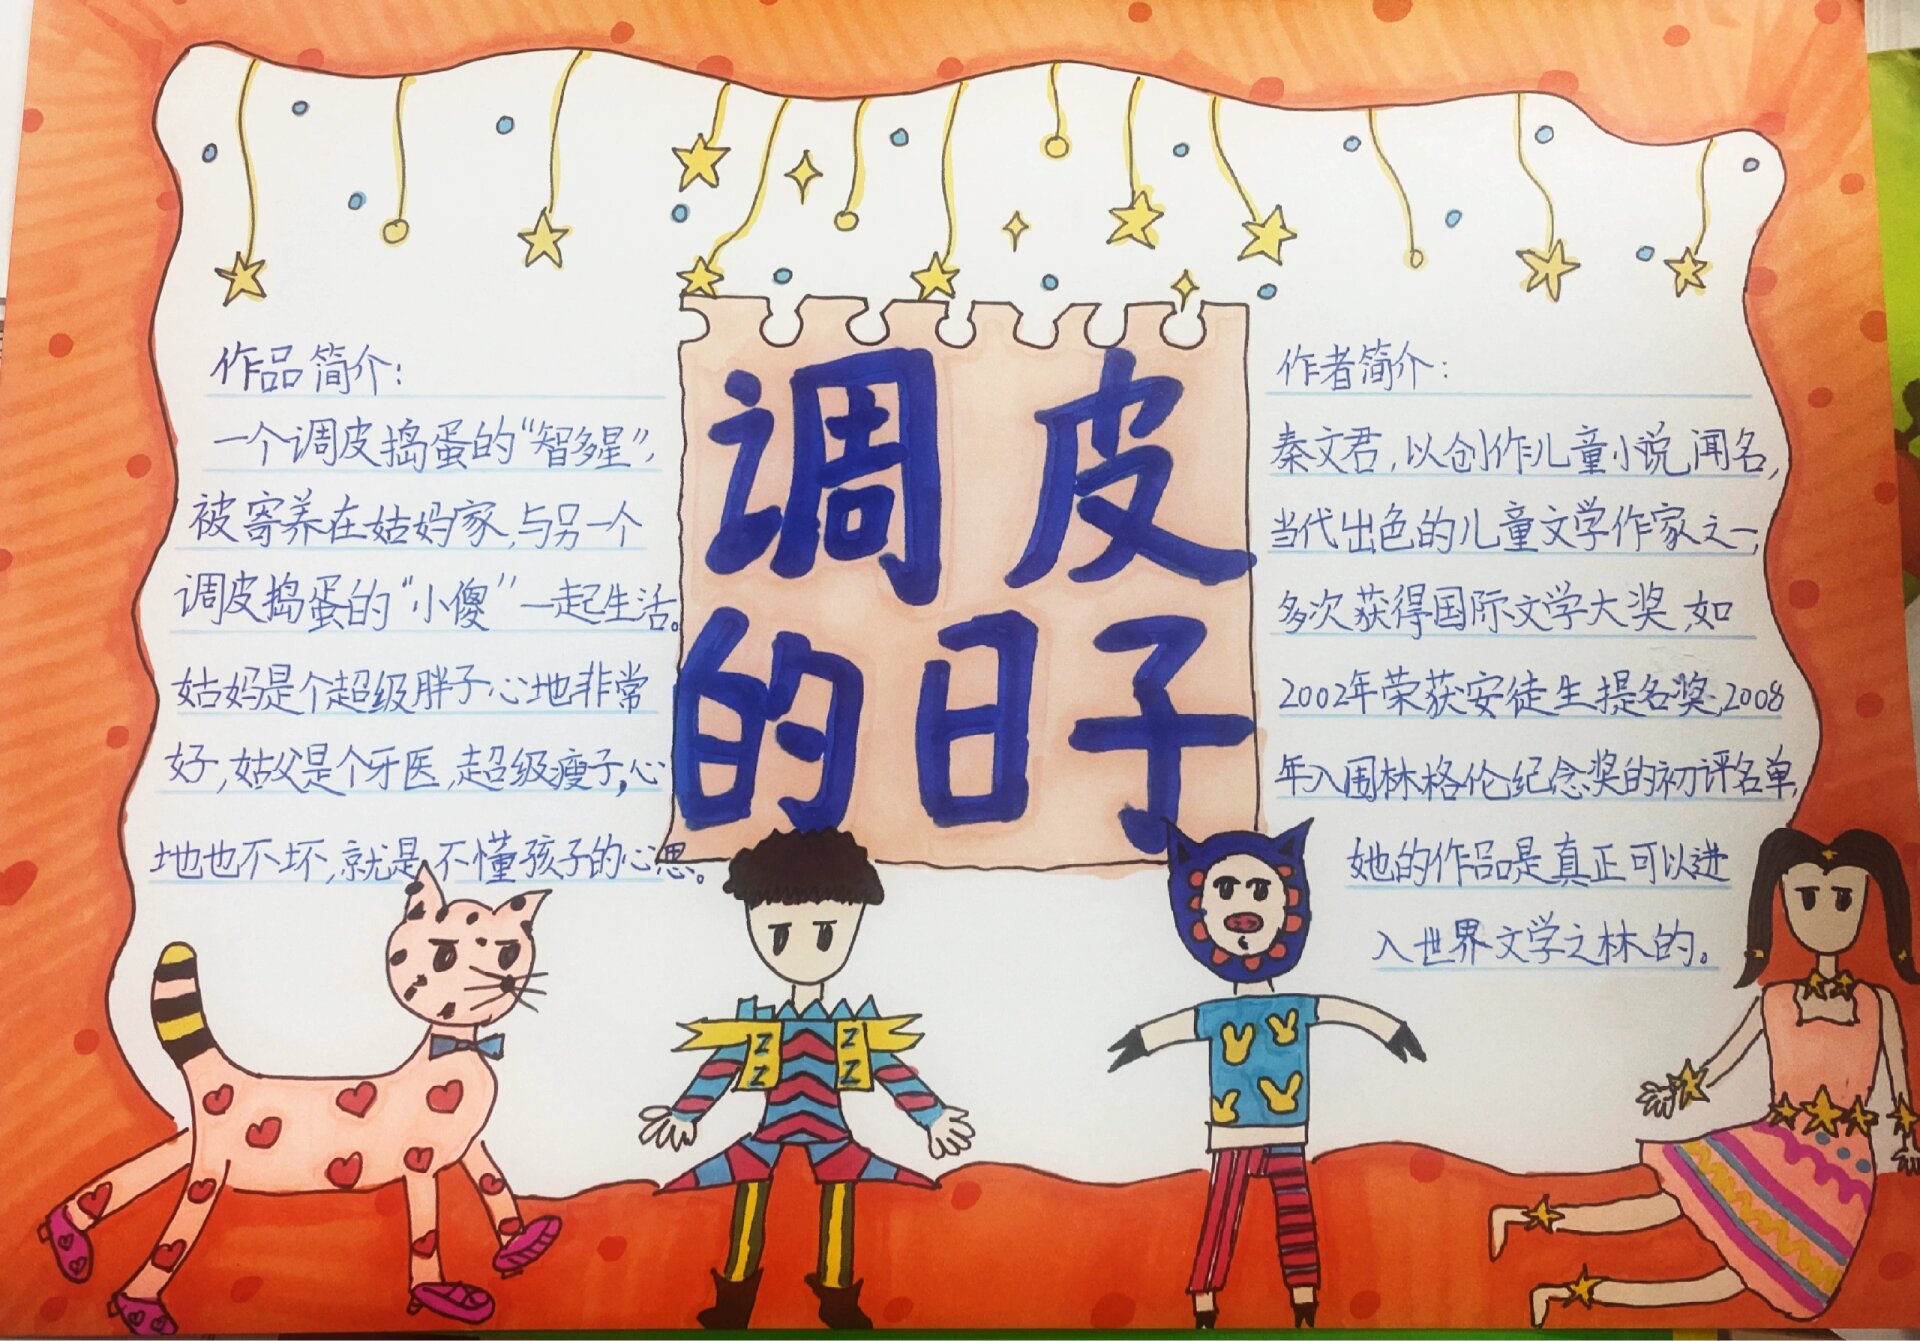 调皮
的日子
作品简介：
一个调皮捣蛋的“智多星”，
被寄养在姑妈家，与另一个
调皮捣蛋的“小傻”一起生活。
姑妈是个超级胖子心地非常
好，姑父是个牙医，超级瘦子，心
地也不坏，就是不懂孩子的心思。
作者简介：
秦文君，以创作儿童小说闻名，
当代出色的儿童文学作家之一，
多次获得国际文学大奖，如
2002年荣获安徒生提名奖，2008
年入围林格伦纪念奖的初评名单，
她的作品是真正可以进
入世界文学之林的。
Z
Z
Z
Z